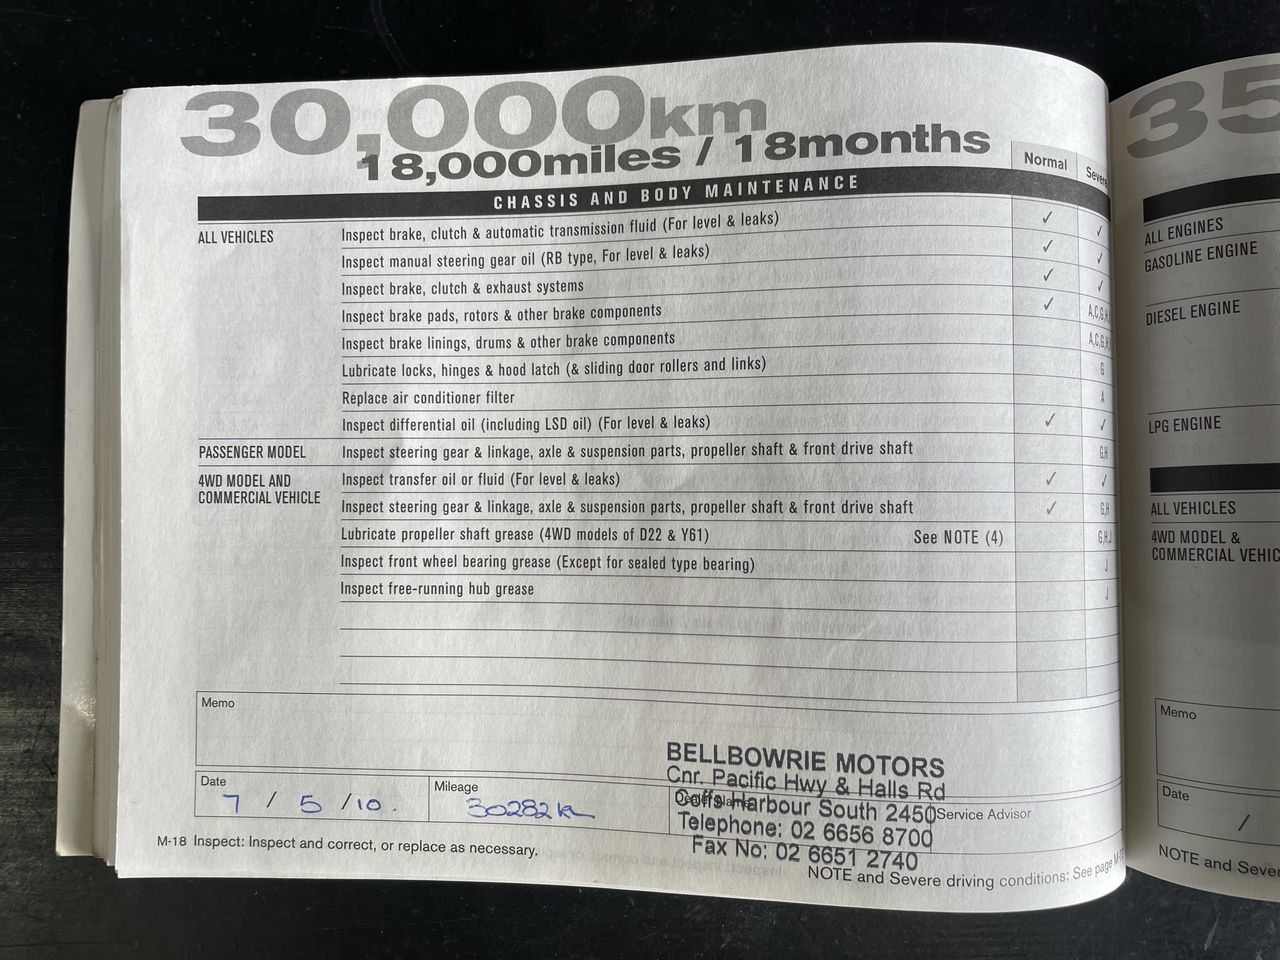 30,000km
18,000miles / 18months
Normal
Severe
CHASSIS AND BODY MAINTENANCE
ALL VEHICLES
Inspect brake, clutch & automatic transmission fluid (For level & leaks) ✓ ✓
Inspect manual steering gear oil (RB type, For level & leaks) ✓ ✓
Inspect brake, clutch & exhaust systems ✓ ✓
Inspect brake pads, rotors & other brake components ✓ A,C,G,H
Inspect brake linings, drums & other brake components A,C,G,H
Lubricate locks, hinges & hood latch (& sliding door rollers and links) G
Replace air conditioner filter A
Inspect differential oil (including LSD oil) (For level & leaks) ✓ ✓
PASSENGER MODEL Inspect steering gear & linkage, axle & suspension parts, propeller shaft & front drive shaft G,H
4WD MODEL AND
COMMERCIAL VEHICLE
Inspect transfer oil or fluid (For level & leaks) ✓ ✓
Inspect steering gear & linkage, axle & suspension parts, propeller shaft & front drive shaft ✓ G,H
Lubricate propeller shaft grease (4WD models of D22 & Y61) See NOTE (4) G,H,J
Inspect front wheel bearing grease (Except for sealed type bearing) J
Inspect free-running hub grease J
Memo
BELLBOWRIE MOTORS
Cnr. Pacific Hwy & Halls Rd
Coffs Harbour South 2450
Telephone: 02 6656 8700
Fax No: 02 6651 2740
Date
7 / 5 / 10.
Mileage
30282k
Service Advisor
M-18 Inspect: Inspect and correct, or replace as necessary.
NOTE and Severe driving conditions: See page M-
35
ALL ENGINES
GASOLINE ENGINE
DIESEL ENGINE
LPG ENGINE
ALL VEHICLES
4WD MODEL &
COMMERCIAL VEHIC
Memo
Date
/
NOTE and Sever